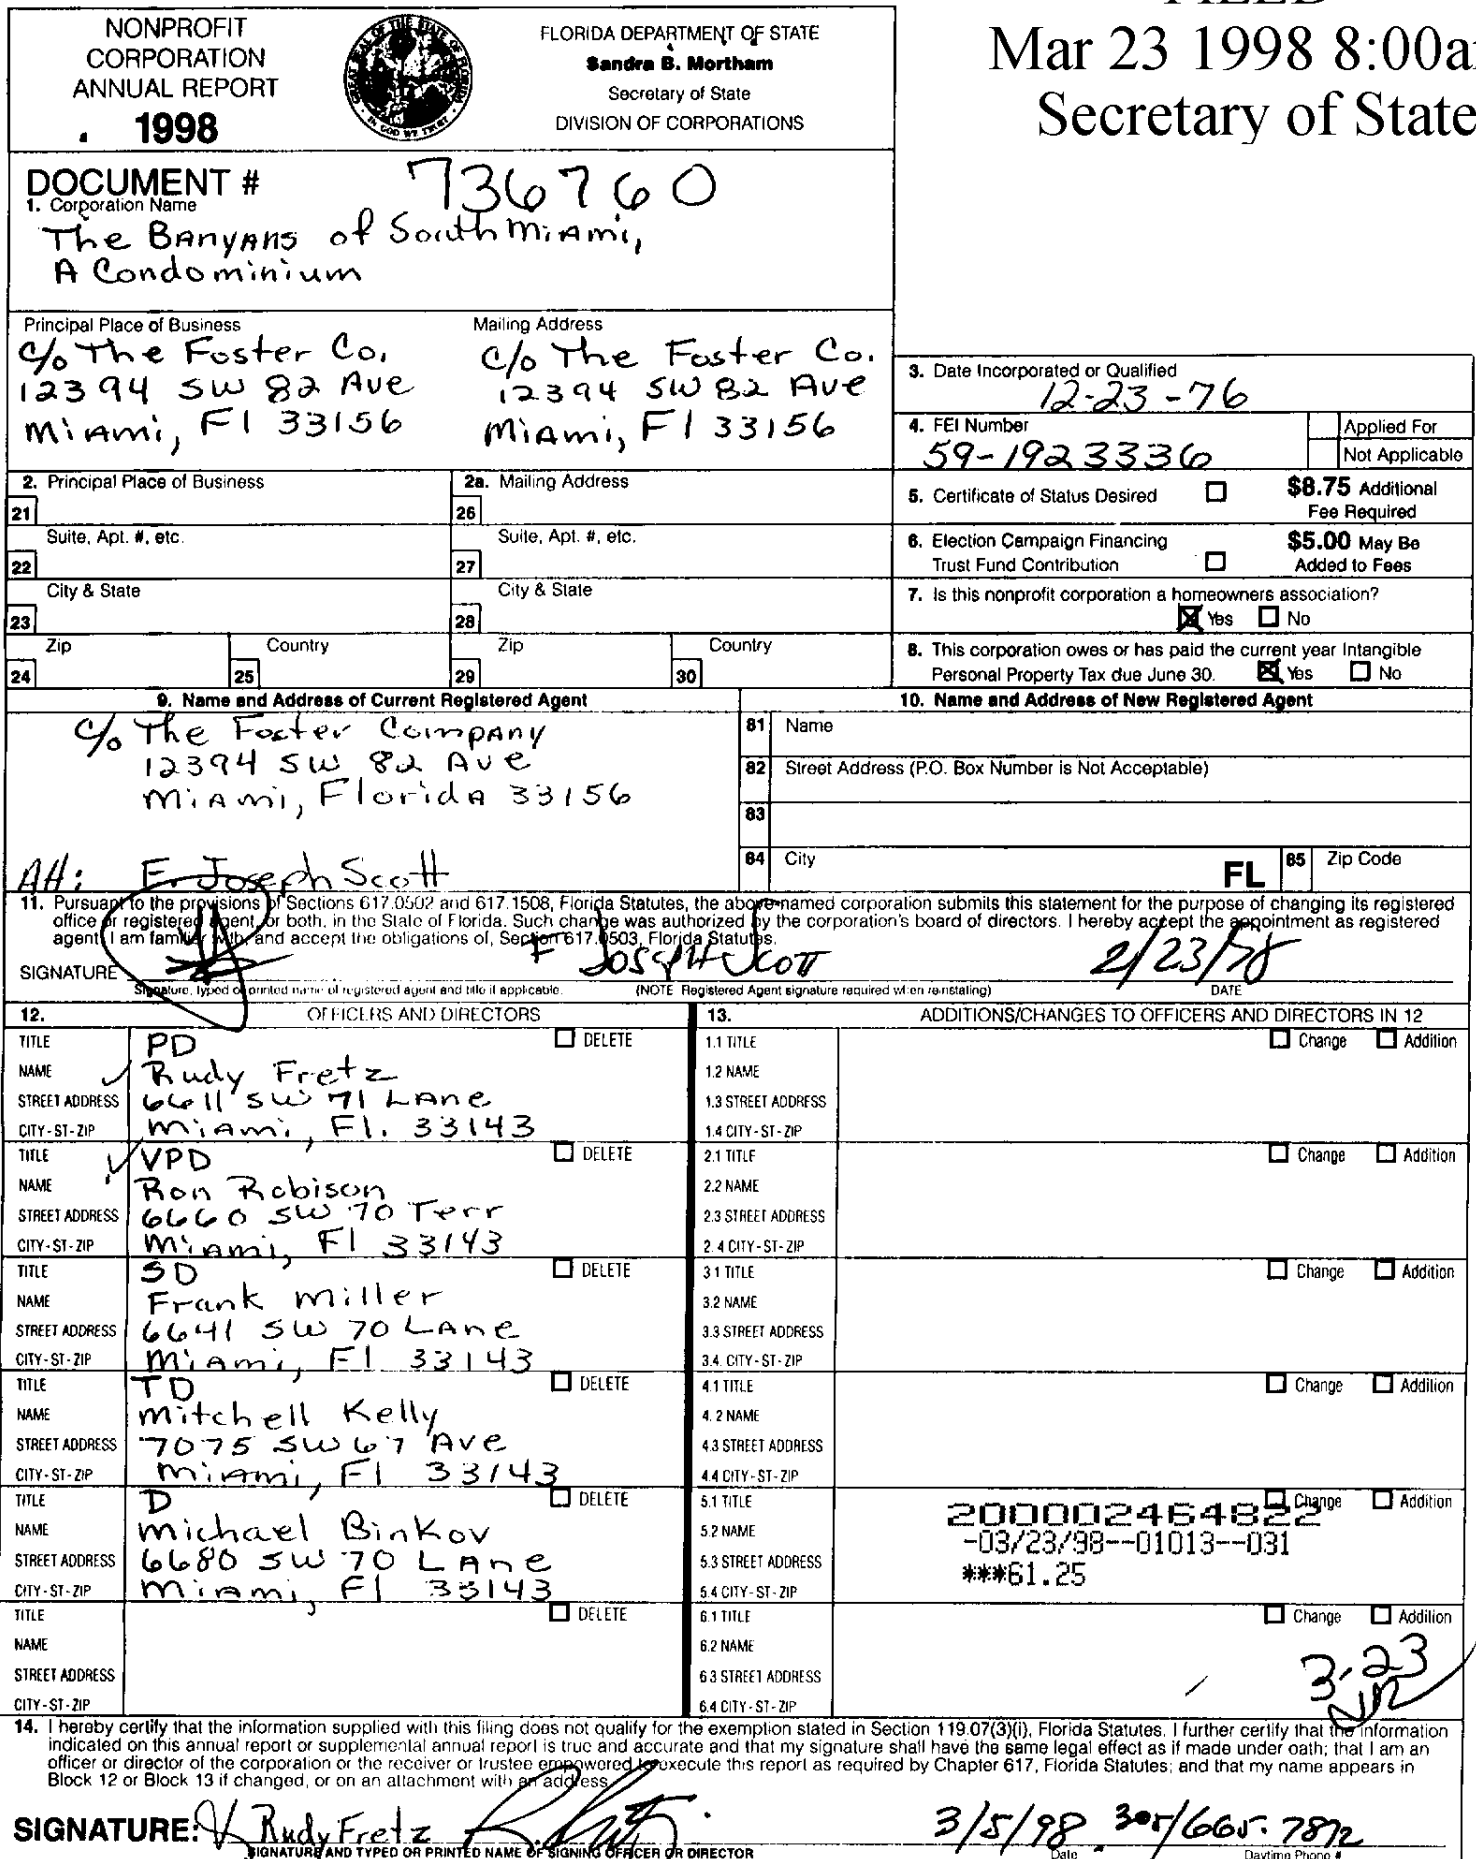 NONPROFIT
CORPORATION
ANNUAL REPORT
1998
FLORIDA DEPARTMENT OF STATE
Sandra B. Mortham
Secretary of State
DIVISION OF CORPORATIONS
FILED
Mar 23 1998 8:00a
Secretary of State
DOCUMENT # 736760
1. Corporation Name
The Banyans of South Miami,
A Condominium
Principal Place of Business
c/o The Foster Co.
12394 SW 82 Ave
Miami, Fl 33156
Mailing Address
c/o The Foster Co.
12394 SW 82 Ave
Miami, Fl 33156
3. Date Incorporated or Qualified
12-23-76
4. FEI Number
59-1923336
Applied For
Not Applicable
2. Principal Place of Business
21
Suite, Apt. #, etc.
22
City & State
23
Zip
24
Country
25
2a. Mailing Address
26
Suite, Apt. #, etc.
27
City & State
28
Zip
29
Country
30
5. Certificate of Status Desired
$8.75 Additional
Fee Required
6. Election Campaign Financing
Trust Fund Contribution
$5.00 May Be
Added to Fees
7. Is this nonprofit corporation a homeowners association?
Yes No
8. This corporation owes or has paid the current year Intangible
Personal Property Tax due June 30. Yes No
9. Name and Address of Current Registered Agent
c/o The Foster Company
12394 SW 82 Ave
Miami, Florida 33156
Att: F. Joseph Scott
10. Name and Address of New Registered Agent
81 Name
82 Street Address (P.O. Box Number is Not Acceptable)
83
84 City FL 85 Zip Code
11. Pursuant to the provisions of Sections 617.0502 and 617.1508, Florida Statutes, the above-named corporation submits this statement for the purpose of changing its registered
office or registered agent, or both, in the State of Florida. Such change was authorized by the corporation's board of directors. I hereby accept the appointment as registered
agent. I am familiar with, and accept the obligations of, Section 617.0503, Florida Statutes.
SIGNATURE F Joseph Scott 2/23/98
Signature, typed or printed name of registered agent and title if applicable. (NOTE Registered Agent signature required when reinstating) DATE
12. OFFICERS AND DIRECTORS
TITLE PD DELETE
NAME Rudy Fretz
STREET ADDRESS 6611 SW 71 Lane
CITY-ST-ZIP Miami, Fl. 33143
TITLE VPD DELETE
NAME Ron Robison
STREET ADDRESS 6660 SW 70 Terr
CITY-ST-ZIP Miami, Fl 33143
TITLE SD DELETE
NAME Frank Miller
STREET ADDRESS 6641 SW 70 Lane
CITY-ST-ZIP Miami, Fl 33143
TITLE TD DELETE
NAME Mitchell Kelly
STREET ADDRESS 7075 SW 67 Ave
CITY-ST-ZIP Miami, Fl 33143
TITLE D DELETE
NAME Michael Binkov
STREET ADDRESS 6680 SW 70 Lane
CITY-ST-ZIP Miami, Fl 33143
TITLE DELETE
NAME
STREET ADDRESS
CITY-ST-ZIP
13. ADDITIONS/CHANGES TO OFFICERS AND DIRECTORS IN 12
1.1 TITLE Change Addition
1.2 NAME
1.3 STREET ADDRESS
1.4 CITY-ST-ZIP
2.1 TITLE Change Addition
2.2 NAME
2.3 STREET ADDRESS
2.4 CITY-ST-ZIP
3.1 TITLE Change Addition
3.2 NAME
3.3 STREET ADDRESS
3.4. CITY-ST-ZIP
4.1 TITLE Change Addition
4.2 NAME
4.3 STREET ADDRESS
4.4 CITY-ST-ZIP
5.1 TITLE Change Addition
200002464822
5.2 NAME
-03/23/98--01013--031
5.3 STREET ADDRESS
***61.25
5.4 CITY-ST-ZIP
6.1 TITLE Change Addition
6.2 NAME
6.3 STREET ADDRESS
3-23
6.4 CITY-ST-ZIP
14. I hereby certify that the information supplied with this filing does not qualify for the exemption stated in Section 119.07(3)(i), Florida Statutes. I further certify that the information
indicated on this annual report or supplemental annual report is true and accurate and that my signature shall have the same legal effect as if made under oath; that I am an
officer or director of the corporation or the receiver or trustee empowered to execute this report as required by Chapter 617, Florida Statutes; and that my name appears in
Block 12 or Block 13 if changed, or on an attachment with an address.
SIGNATURE: Rudy Fretz 3/5/98 305/665-7872
SIGNATURE AND TYPED OR PRINTED NAME OF SIGNING OFFICER OR DIRECTOR Date Daytime Phone #